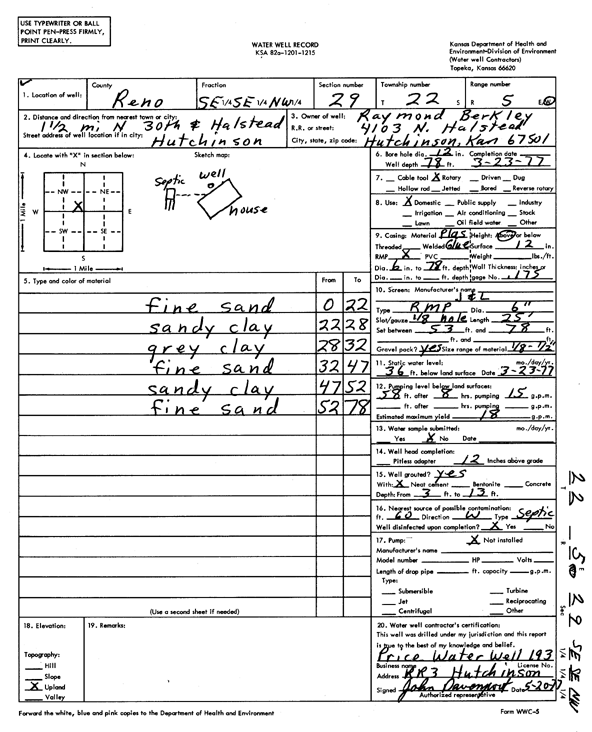 USE TYPEWRITER OR BALL
POINT PEN-PRESS FIRMLY,
PRINT CLEARLY.
WATER WELL RECORD
KSA 82a-1201-1215
Kansas Department of Health and
Environment-Division of Environment
(Water well Contractors)
Topeka, Kansas 66620
1. Location of well:
County
Reno
Fraction
SE 1/4 SE 1/4 NW 1/4
Section number
29
Township number
T 22 S
Range number
R 5 E/W
2. Distance and direction from nearest town or city:
1 1/2 mi. N 30th & Halstead
Street address of well location if in city:
Hutchinson
3. Owner of well: Raymond Berkley
R.R. or street: 4103 N. Halstead
City, state, zip code: Hutchinson, Kan 67501
4. Locate with "X" in section below:
Sketch map:
N
NW NE
W X E
SW SE
S
1 Mile
1 Mile
Septic
well
house
6. Bore hole dia. 12 in. Completion date
Well depth 78 ft. 3-23-77
7. Cable tool X Rotary Driven Dug
Hollow rod Jetted Bored Reverse rotary
8. Use: X Domestic Public supply Industry
Irrigation Air conditioning Stock
Lawn Oil field water Other
9. Casing: Material Plas Height: Above or below
Threaded Welded Glue Surface 12 in.
RMP X PVC Weight lbs./ft.
Dia. 6 in. to 78 ft. depth Wall Thickness: inches or
Dia. in. to ft. depth gage No. .175
5. Type and color of material
From To
fine sand 0 22
sandy clay 22 28
grey clay 28 32
fine sand 32 47
sandy clay 47 52
fine sand 52 78
(Use a second sheet if needed)
10. Screen: Manufacturer's name
J & L
Type RMP Dia. 6"
Slot/gauze 1/8 hole Length 25'
Set between 53 ft. and 78 ft.
ft. and ft.
Gravel pack? yes Size range of material 1/8-1/2"
11. Static water level: mo./day/yr.
36 ft. below land surface Date 3-23-77
12. Pumping level below land surfaces:
58 ft. after 8 hrs. pumping 15 g.p.m.
ft. after hrs. pumping g.p.m.
Estimated maximum yield 18 g.p.m.
13. Water sample submitted: mo./day/yr.
Yes X No Date
14. Well head completion:
Pitless adapter 12 Inches above grade
15. Well grouted? yes
With: X Neat cement Bentonite Concrete
Depth: From 3 ft. to 13 ft.
16. Nearest source of possible contamination:
ft. 60 Direction W Type Septic
Well disinfected upon completion? X Yes No
17. Pump: X Not installed
Manufacturer's name
Model number HP Volts
Length of drop pipe ft. capacity g.p.m.
Type:
Submersible Turbine
Jet Reciprocating
Centrifugal Other
18. Elevation:
Topography:
Hill
Slope
X Upland
Valley
19. Remarks:
20. Water well contractor's certification:
This well was drilled under my jurisdiction and this report
is true to the best of my knowledge and belief.
Price Water Well 193
Business name License No.
Address RR3 Hutchinson
Signed John Davenport Date 5-20-77
Authorized representative
Forward the white, blue and pink copies to the Department of Health and Environment
Form WWC-5
T R E Sec 1/4 1/4 1/4
SE SE NW